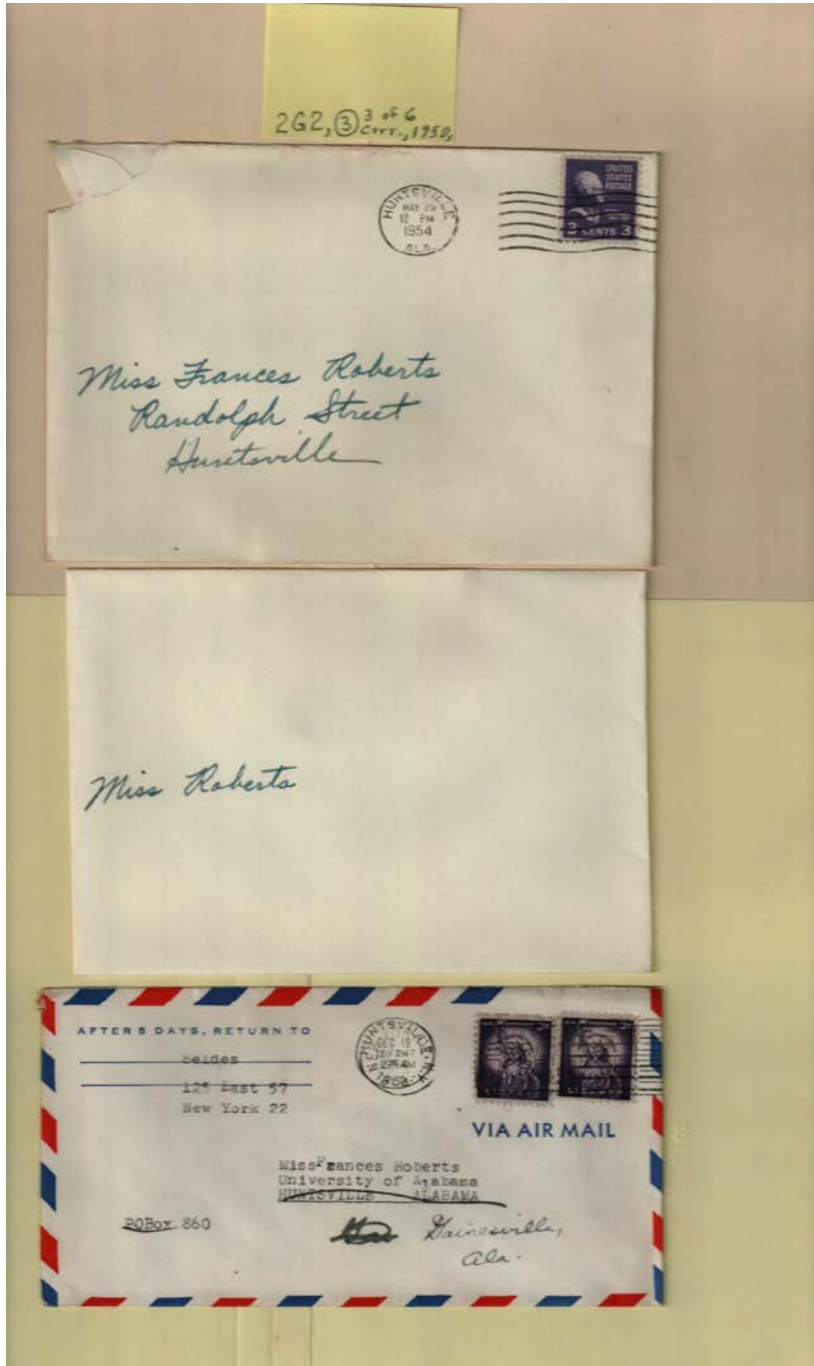 2G2, ③ 3 of 6
Corr., 1950,
HUNTSVILLE
MAY 25
12 PM
1954
ALA.
UNITED
STATES
POSTAGE
3 CENTS 3
Miss Frances Roberts
Randolph Street
Huntsville
Miss Roberts
AFTER 5 DAYS, RETURN TO
Seldes
125 East 57
New York 22
HUNTSVILLE
DEC 19
VIA AIR MAIL
Miss Frances Roberts
University of Alabama
HUNTSVILLE ALABAMA
POBox 860
Gainesville,
Ala.